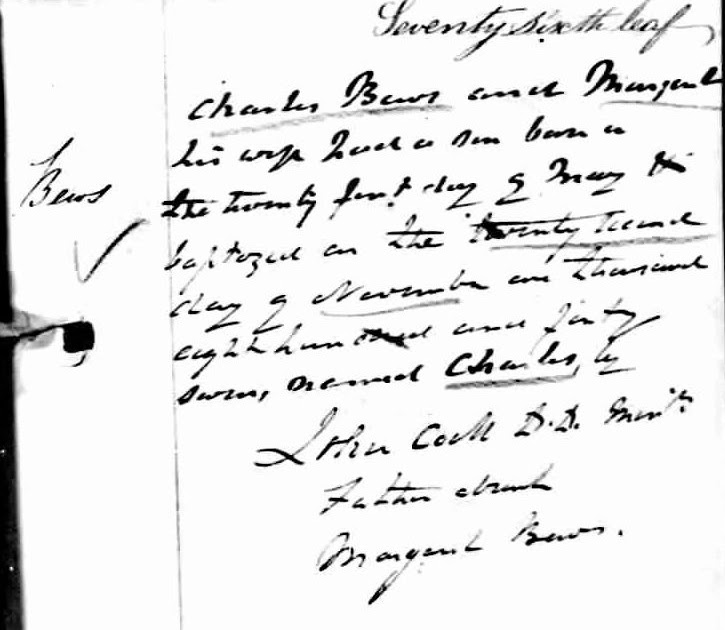 Seventy sixth leaf
Charles Bews and Margaret
his wife had a son born a
Bews
the twenty first day of May &
baptized on the twenty second
day of November one thousand
eight hundred and forty
seven, named Charles, by
John Cook D.D. Minr.
Father absent
Margaret Bews.